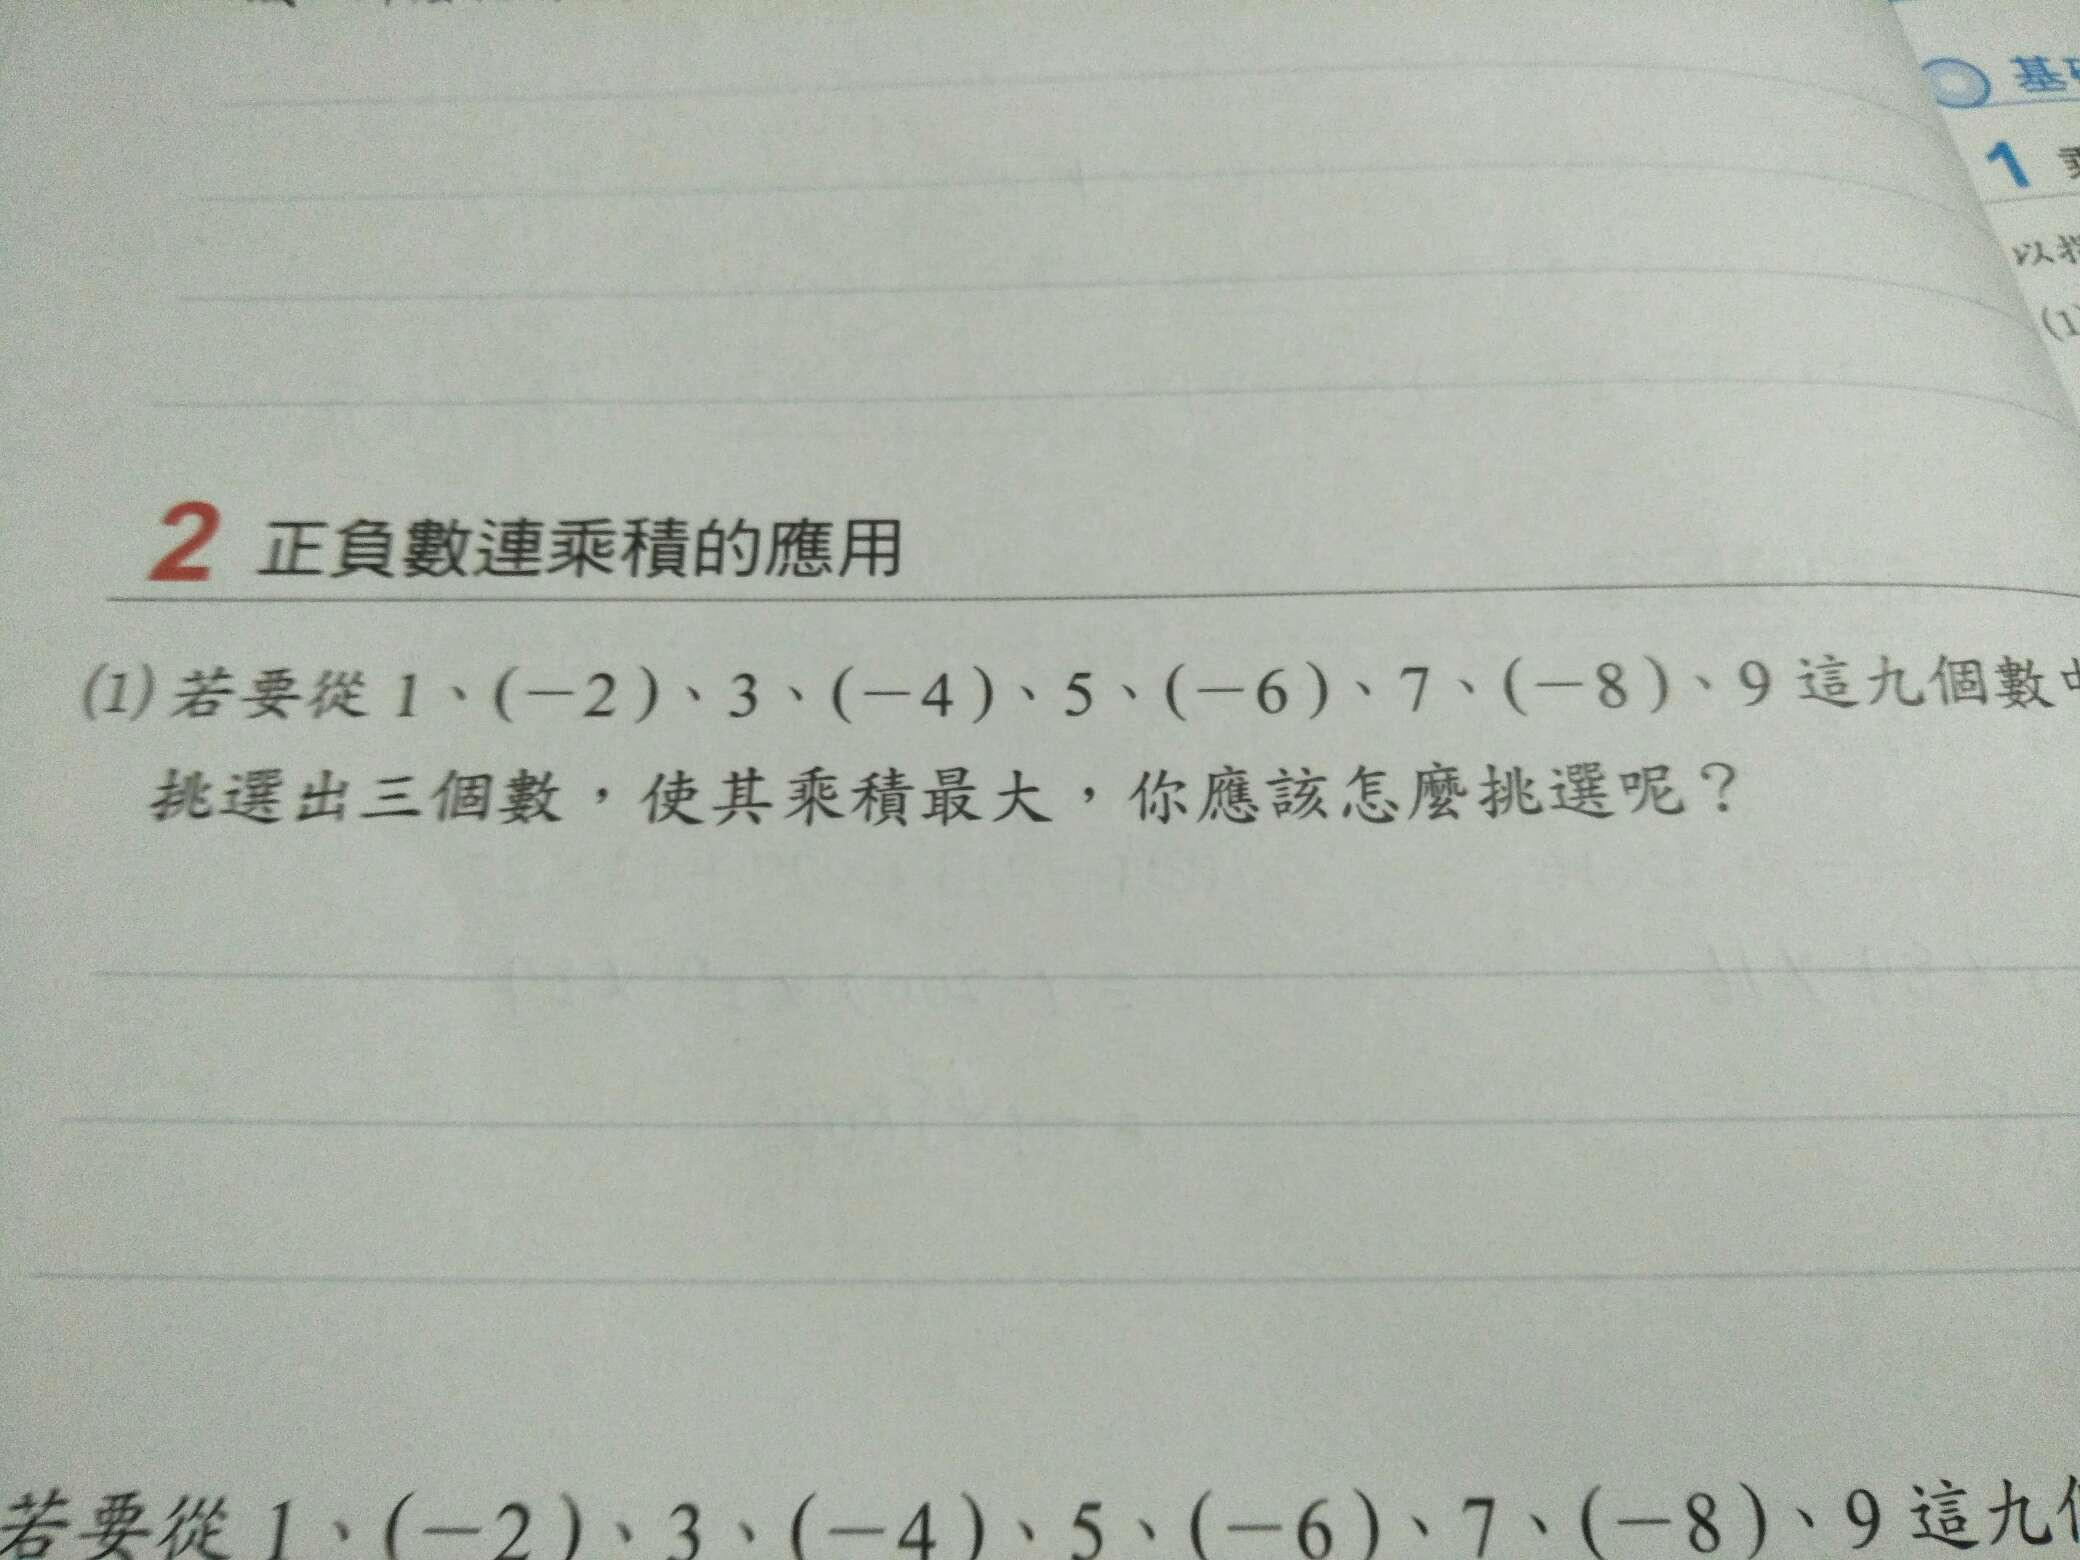 2 正負數連乘積的應用
(1) 若要從 1、(-2)、3、(-4)、5、(-6)、7、(-8)、9 這九個數
挑選出三個數，使其乘積最大，你應該怎麼挑選呢？
若要從 1、(-2)、3、(-4)、5、(-6)、7、(-8)、9 這九
基
1
以
(1)